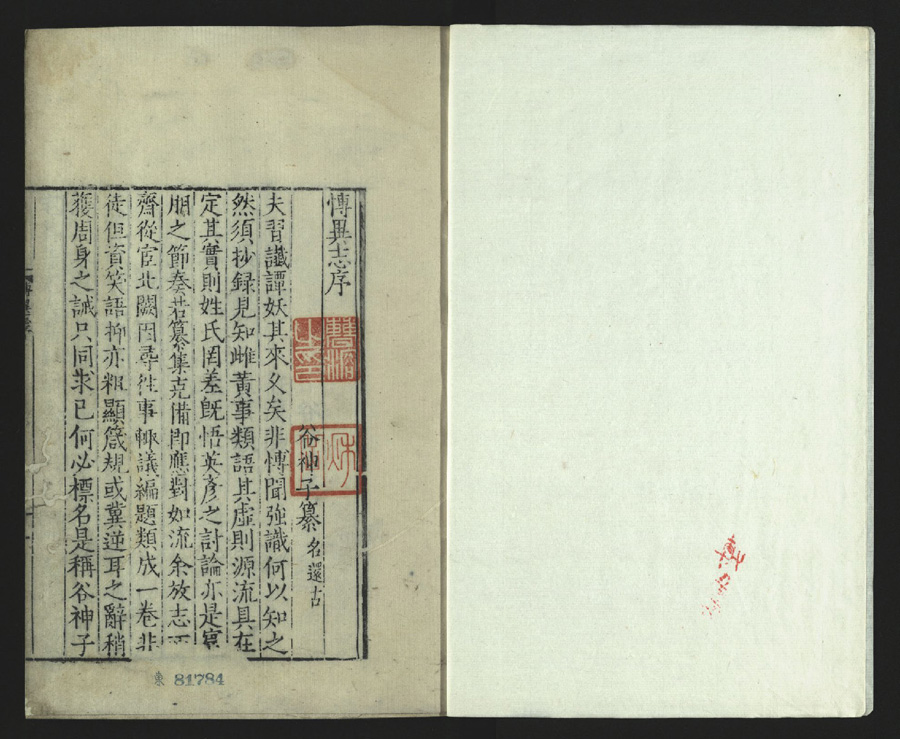 博異志序
谷神子纂 名還古
夫習讖譚妖其來久矣非博聞強識何以知之
然須抄録見知雌黃事類語其虛則源流具在
定其實則姓氏罔差旣悟英彥之討論亦是賓
朋之節奏若纂集克備即應對如流余放志西
齋從宦北闕因尋往事輙議編題類成一卷非
徒但資笑語抑亦粗顯箴規或冀逆耳之辭稍
獲周身之誡只同求已何必標名是稱谷神子
81784